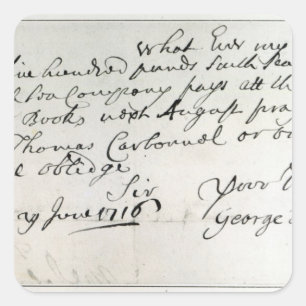 What Ever my
hundred pounds South Sea
Sea Company pays att th
Books next August pra
Thomas Carbonnel or
oblidge
Sir
June 1716
George